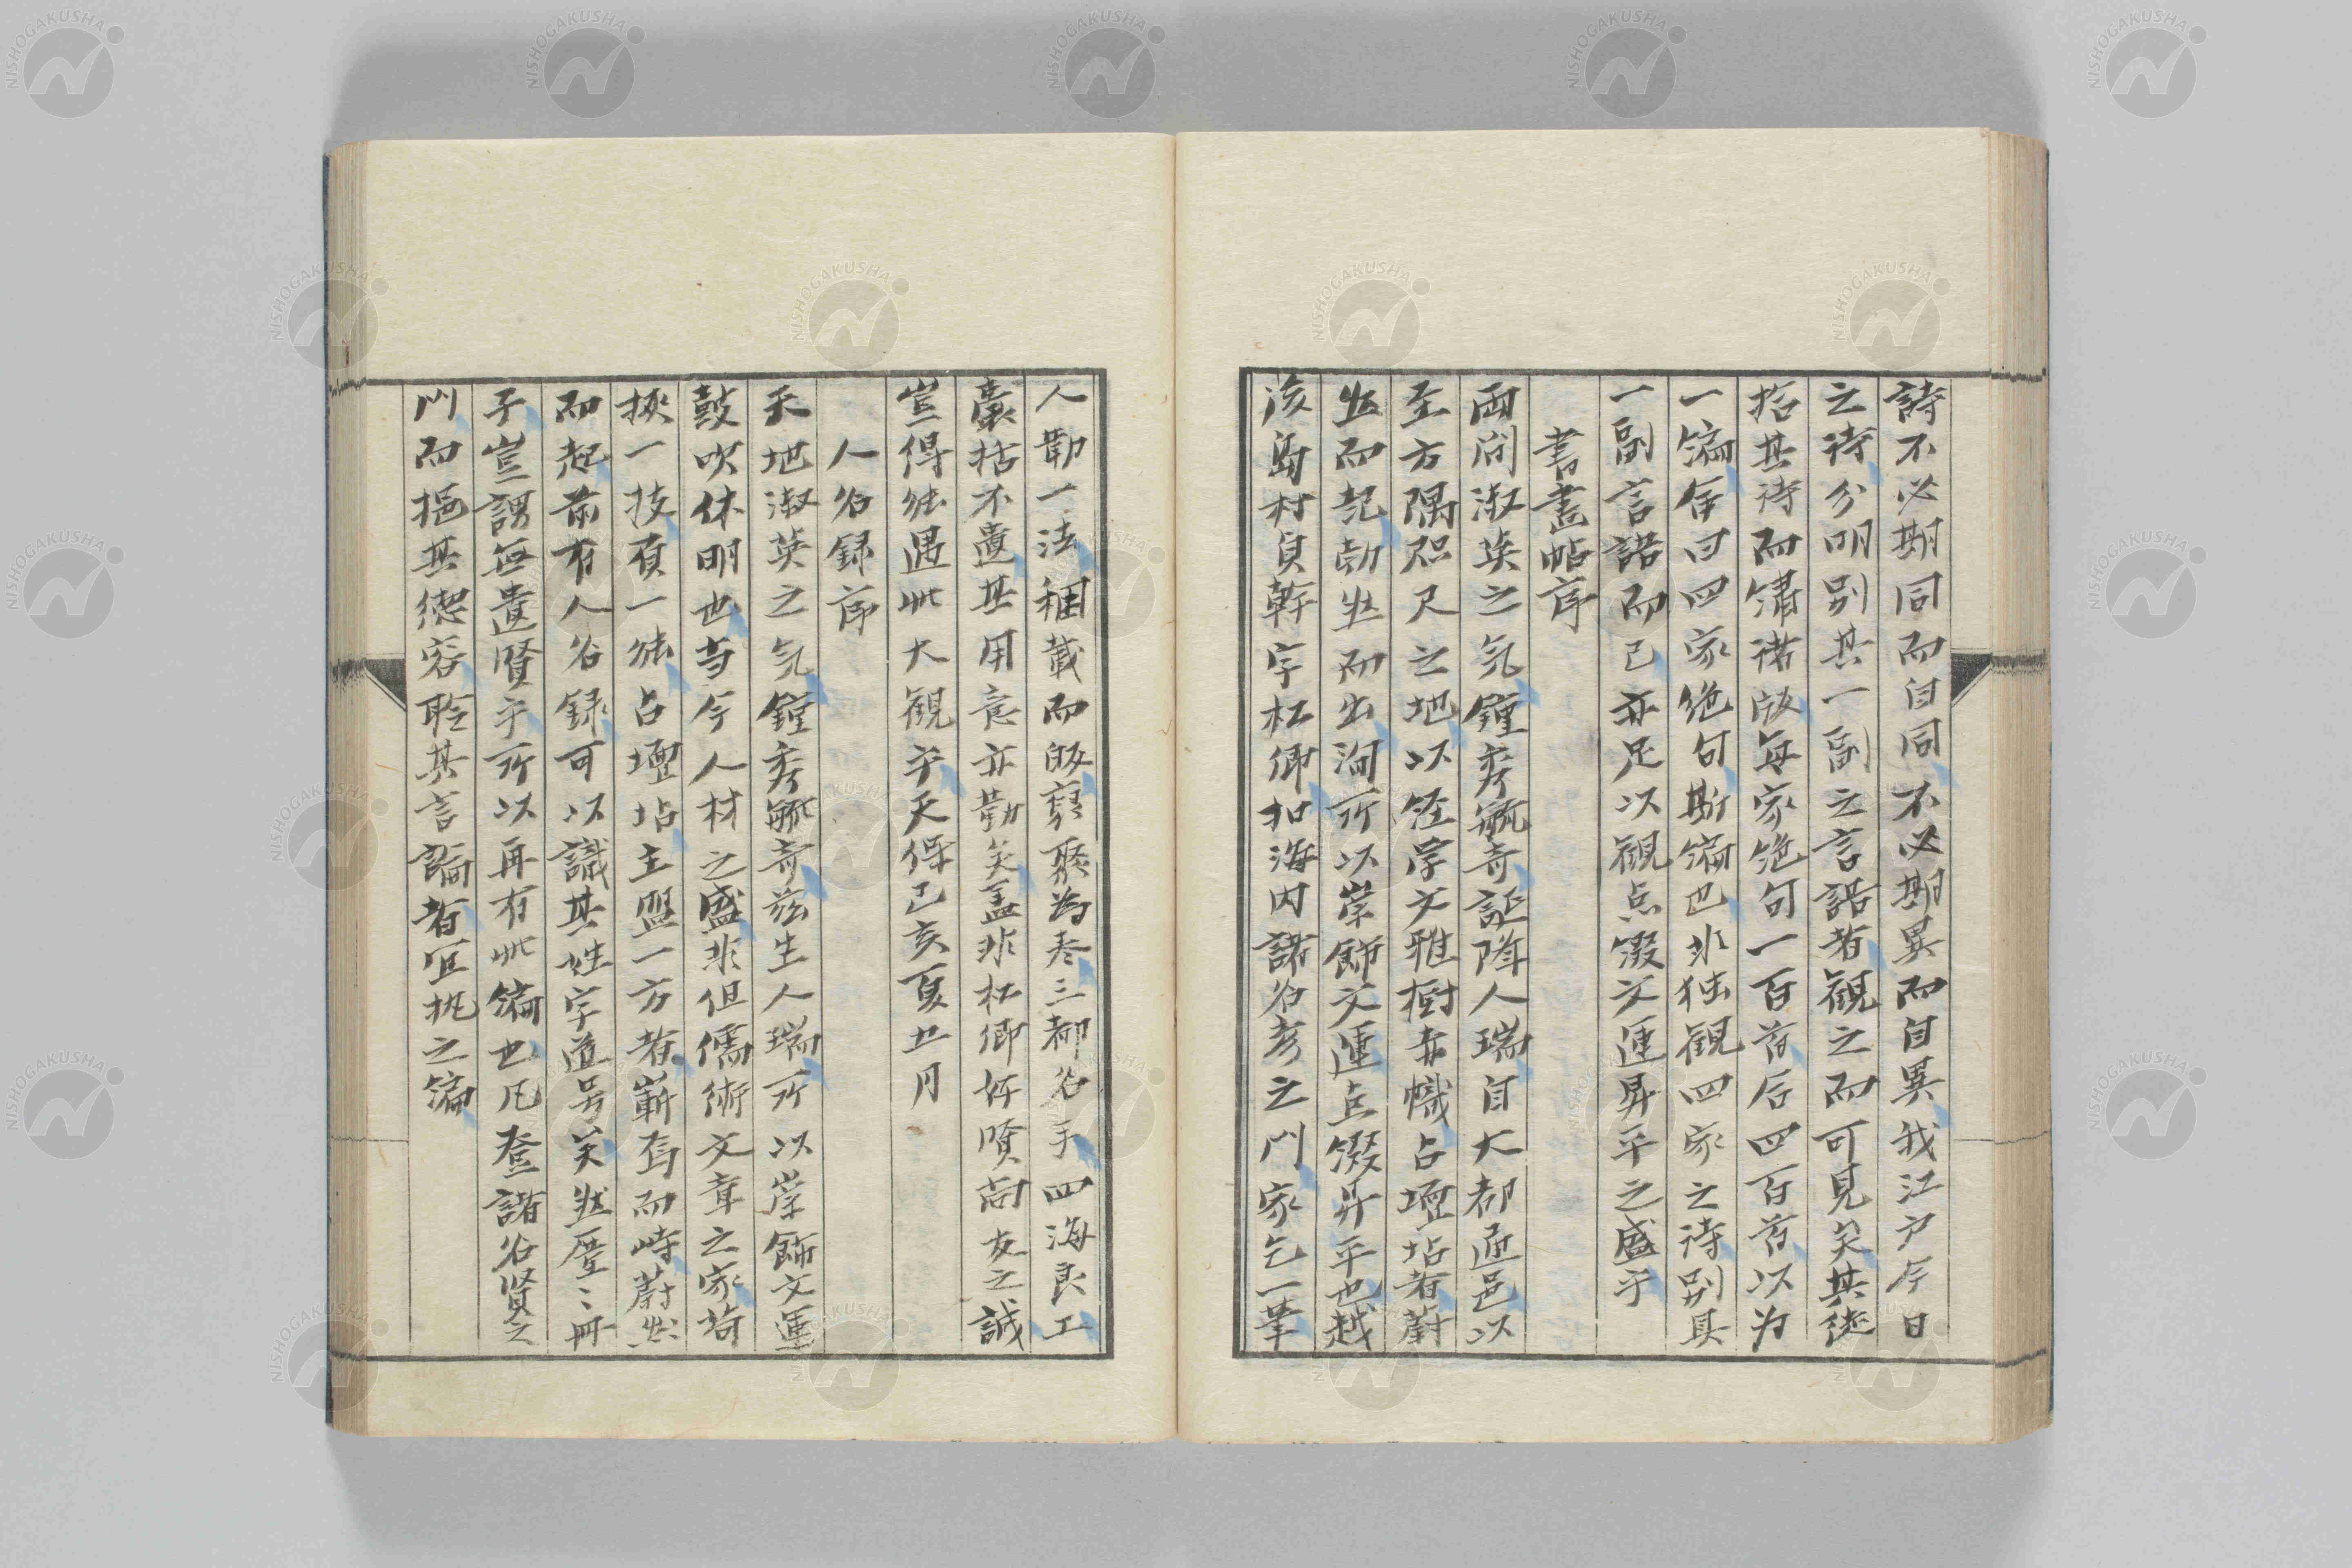 詩不必期同而自同不必期異而自異我江戸今日
之詩分明別其一副之言語者観之而可見矣其徒
括其詩而鏽諸版每家絶句一百首合四百首以为
一編名曰四家絶句斯編也非独観四家之詩別具
一副言語而已亦足以観点綴文運昇平之盛乎
書畫帖序
両间淑英之気鍾秀毓奇誕降人瑞自大都通邑以
至方隅咫尺之地以経学文雅樹赤幟占壇坫者蔚
然而起勃然而出洵所以崇飾文運点綴昇平也越
後島村貞幹字松卿扣海内諸名彦之门家乞一筆
人勒一法稇載而皈裒聚為巻三都名手四海良工
囊括不遺其用意亦勤矣盖非松卿好賢尚友之誠
豈得能遇此大観乎天保己亥夏五月
人名録序
天地淑英之気鍾秀毓奇茲生人瑞所以崇飾文運
鼓吹休明也方今人材之盛非但儒術文章之家苟
挾一技負一能占壇坫主盟一方者嶄焉而峙蔚然
而起前有人名録可以識其姓字道号矣然歴々冊
子豈謂無遺賢乎所以再有此編也凡登諸名賢之
门而挹其徳容聆其言論者宜執之編